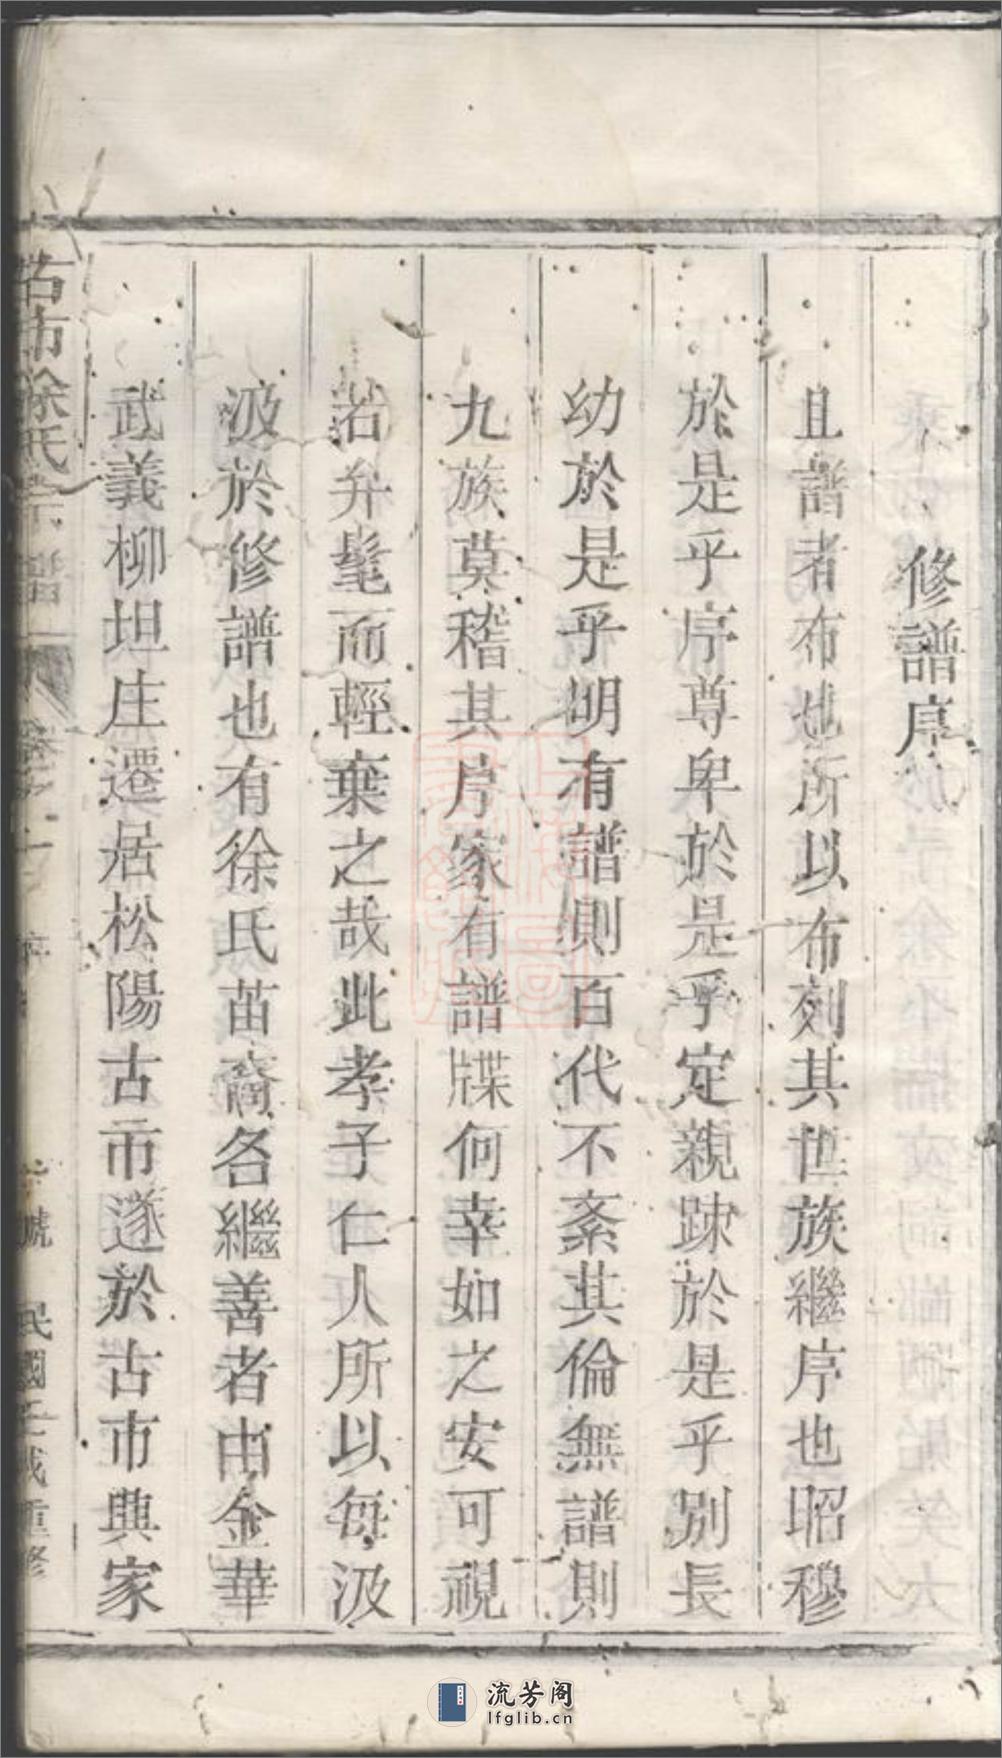 修譜序
且譜者布也所以布列其世族繼序也昭穆
於是乎序尊卑於是乎定親踈於是乎別長
幼於是乎明有譜則百代不紊其倫無譜則
九族莫稽其序家有譜牒何幸如之安可視
若弁髦而輕棄之哉此孝子仁人所以每汲
汲於修譜也有徐氏苗裔各繼善者由金華
武義柳坦庄遷居松陽古市遂於古市興家
古市徐氏宗譜
民國三載重修
流芳阁
lfglib.cn